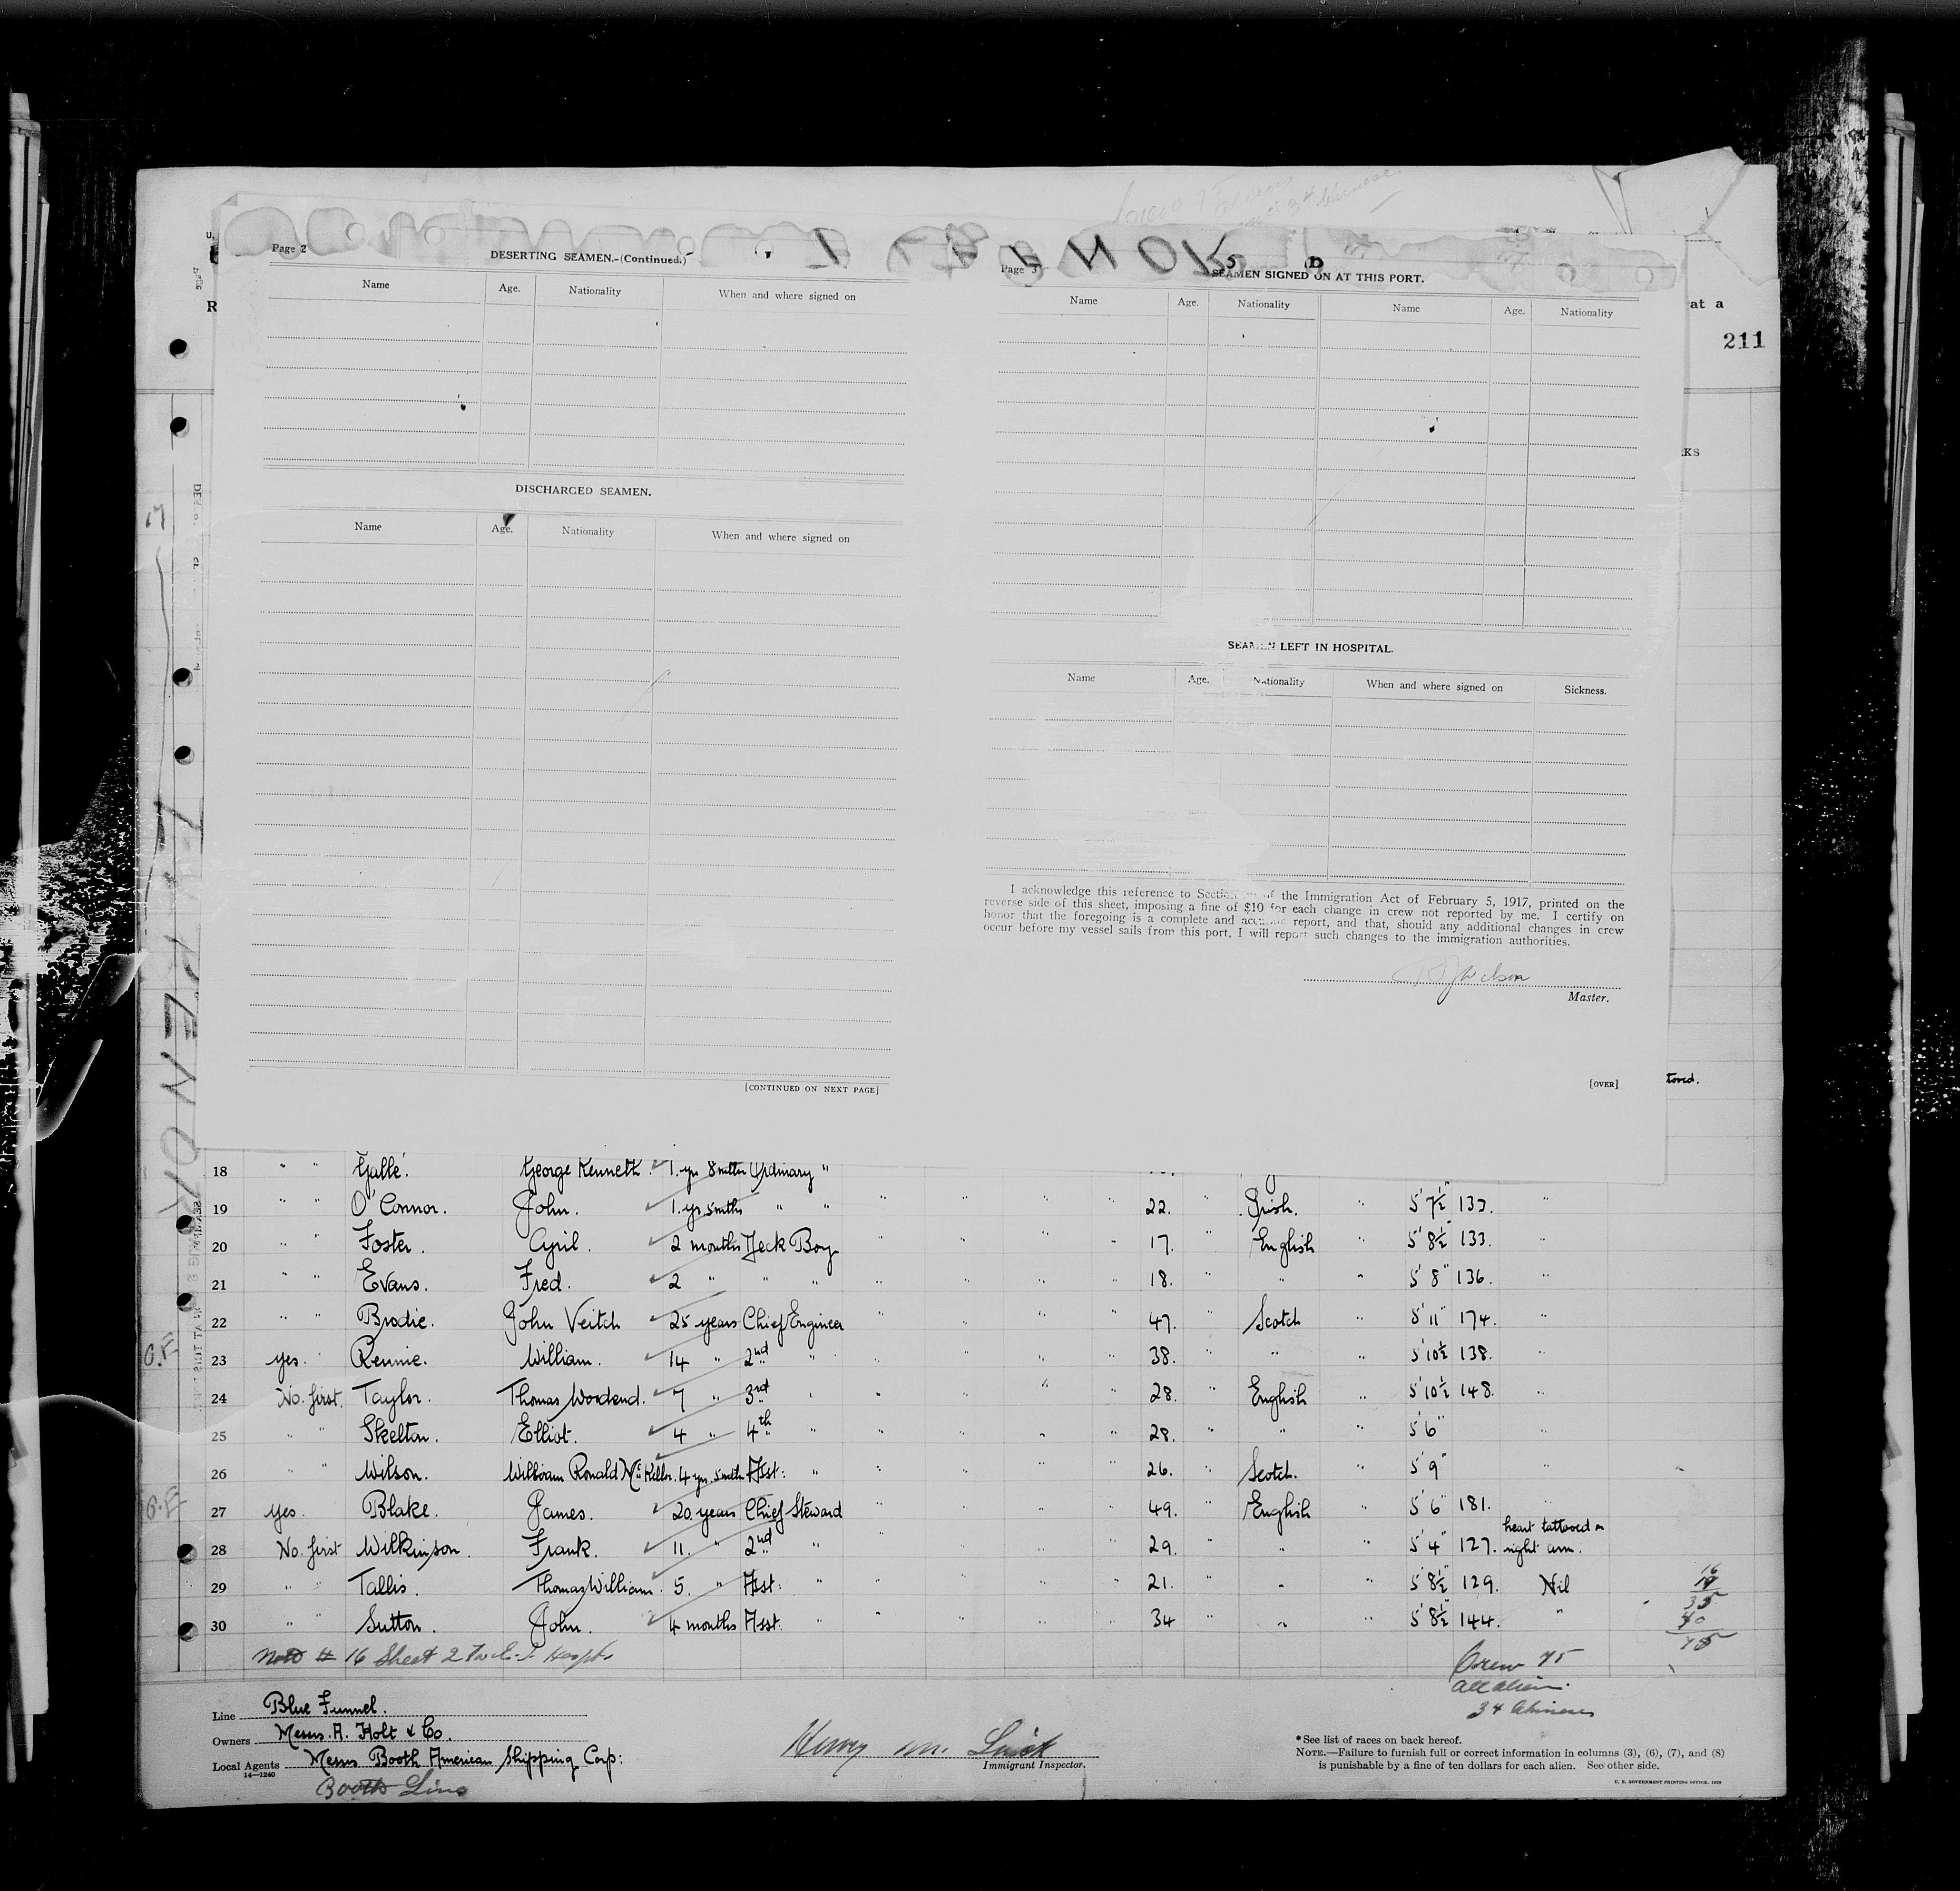 Page 2
DESERTING SEAMEN.-(Continued.)
Name Age. Nationality When and where signed on
DISCHARGED SEAMEN.
Name Age. Nationality When and where signed on
[CONTINUED ON NEXT PAGE]
Page 3
SEAMEN SIGNED ON AT THIS PORT.
Name Age. Nationality Name Age. Nationality
SEAMEN LEFT IN HOSPITAL.
Name Age. Nationality When and where signed on Sickness.
I acknowledge this reference to Section of the Immigration Act of February 5, 1917, printed on the
reverse side of this sheet, imposing a fine of $10 for each change in crew not reported by me. I certify on
honor that the foregoing is a complete and accurate report, and that, should any additional changes in crew
occur before my vessel sails from this port, I will report such changes to the immigration authorities.
Master.
[OVER]
at a
211
KS
tooed.
18 " " Gallé. George Kenneth. 1. yr 8 mths Ordinary "
19 " " O'Connor. John. 1. yr. 5 mths " " " " " " 22. " Irish. " 5' 7½" 133. "
20 " " Foster. Cyril. 2 months Deck Boy " " " " 17. " English " 5' 8½" 133. "
21 " " Evans. Fred. 2 " " " " " " " 18. " " " 5' 8" 136. "
22 " " Brodie. John Veitch 25 years Chief Engineer " " " " 47. " Scotch " 5' 11" 174. "
23 yes. Rennie. William. 14 " 2nd " " " " " 38. " " " 5' 10½ 138. "
24 No. first. Taylor. Thomas Woodend. 7 " 3rd " " " " " 28. " English " 5' 10½ 148. "
25 " " Skelton. Elliot. 4 " 4th " " " " " 28. " " " 5' 6" "
26 " " Wilson. William Ronald McKellor. 4 yrs. 5 mths Asst: " " " " " 26. " Scotch. " 5' 9" "
27 yes. Blake. James. 20 years Chief Steward " " " " 49. " English " 5' 6" 181. "
28 No. first Wilkinson. Frank. 11. " 2nd " " " " " 29. " " " 5' 4" 127. heart tattooed on right arm.
29 " " Tallis. Thomas William. 5. " Asst: " " " " " 21. " " " 5' 8½" 129. Nil
30 " " Sutton. John. 4 months Asst. " " " " " 34 " " " 5' 8½" 144. "
16
35
40
75
Note # 16 Sheet 2
Crew 75
all alien.
34 Chinese
Line Blue Funnel.
Owners Messrs. A. Holt & Co.
Local Agents Messrs Booth American Shipping Corp:
14—1240
Booth Line
Henry M.
Immigrant Inspector.
*See list of races on back hereof.
NOTE.—Failure to furnish full or correct information in columns (3), (6), (7), and (8)
is punishable by a fine of ten dollars for each alien. See other side.